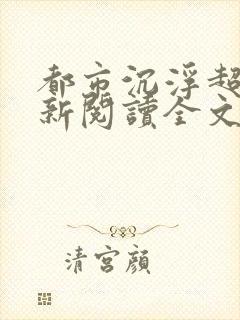 都市沉浮超
新閱讀全文
清宮顏